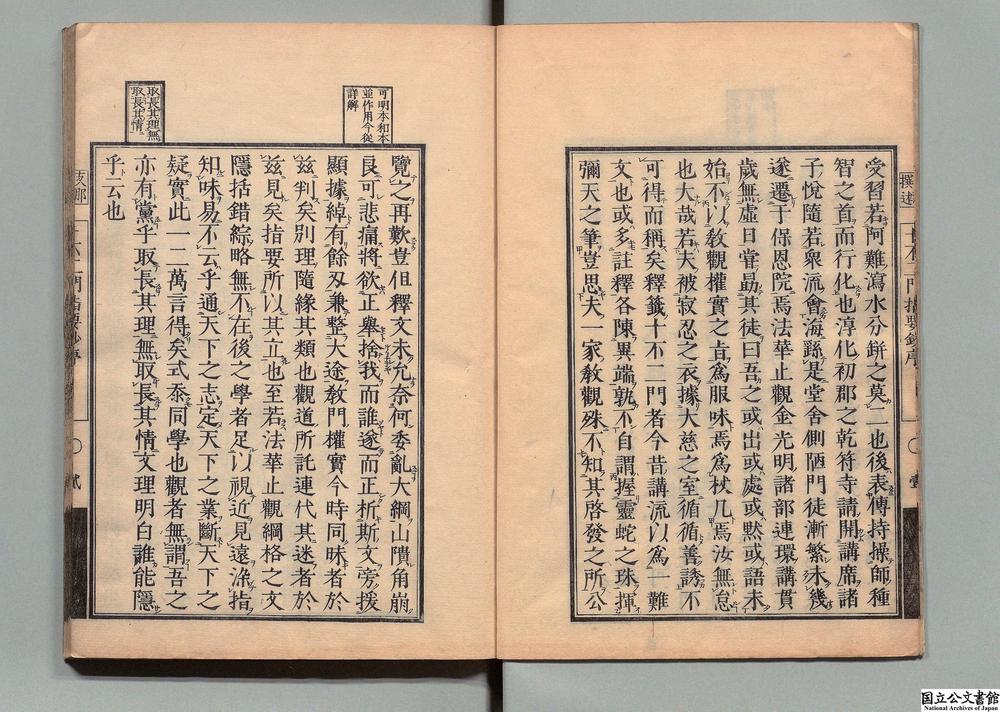 受習若阿難瀉水分缾之莫二也後表傳持操師種
智之首而行化也淳化初郡之乾符寺請開講席諸
子悅隨若衆流會海繇是堂舍側陋門徒漸繁未幾
遂遷于保恩院焉法華止觀金光明諸部連環講貫
歲無虛日甞勗其徒曰吾之或出或處或默或語未
始不以教觀權實之旨爲服味焉爲杖几焉汝無怠
也大哉若夫被寂忍之衣據大慈之室循循善誘不
可得而稱矣釋籤十不二門者今昔講流以爲一難
文也或多註釋各陳異端孰不自謂握靈蛇之珠揮
彌天之筆豈思夫一家教觀殊不知其啓發之所公
可明本和本
並作用今從
詳解
覽之再歎豈但釋文未允奈何委亂大綱山隤角崩
良可悲痛將欲正舉捨我而誰遂而正析斯文旁援
顯據綽有餘刃兼整大途教門權實今時同昧者於
玆判矣別理隨緣其類也觀道所託連代其迷者於
玆見矣指要所以其立也至若法華止觀綱格之文
隱括錯綜略無不在後之學者足以視近見遠染指
知味易不云乎通天下之志定天下之業斷天下之
疑實此一二萬言得矣式忝同學也觀者無謂吾之
亦有黨乎取長其理無取長其情文理明白誰能隱
乎云也
取長其理無
取長其情
國立公文書館
National Archives of Japan